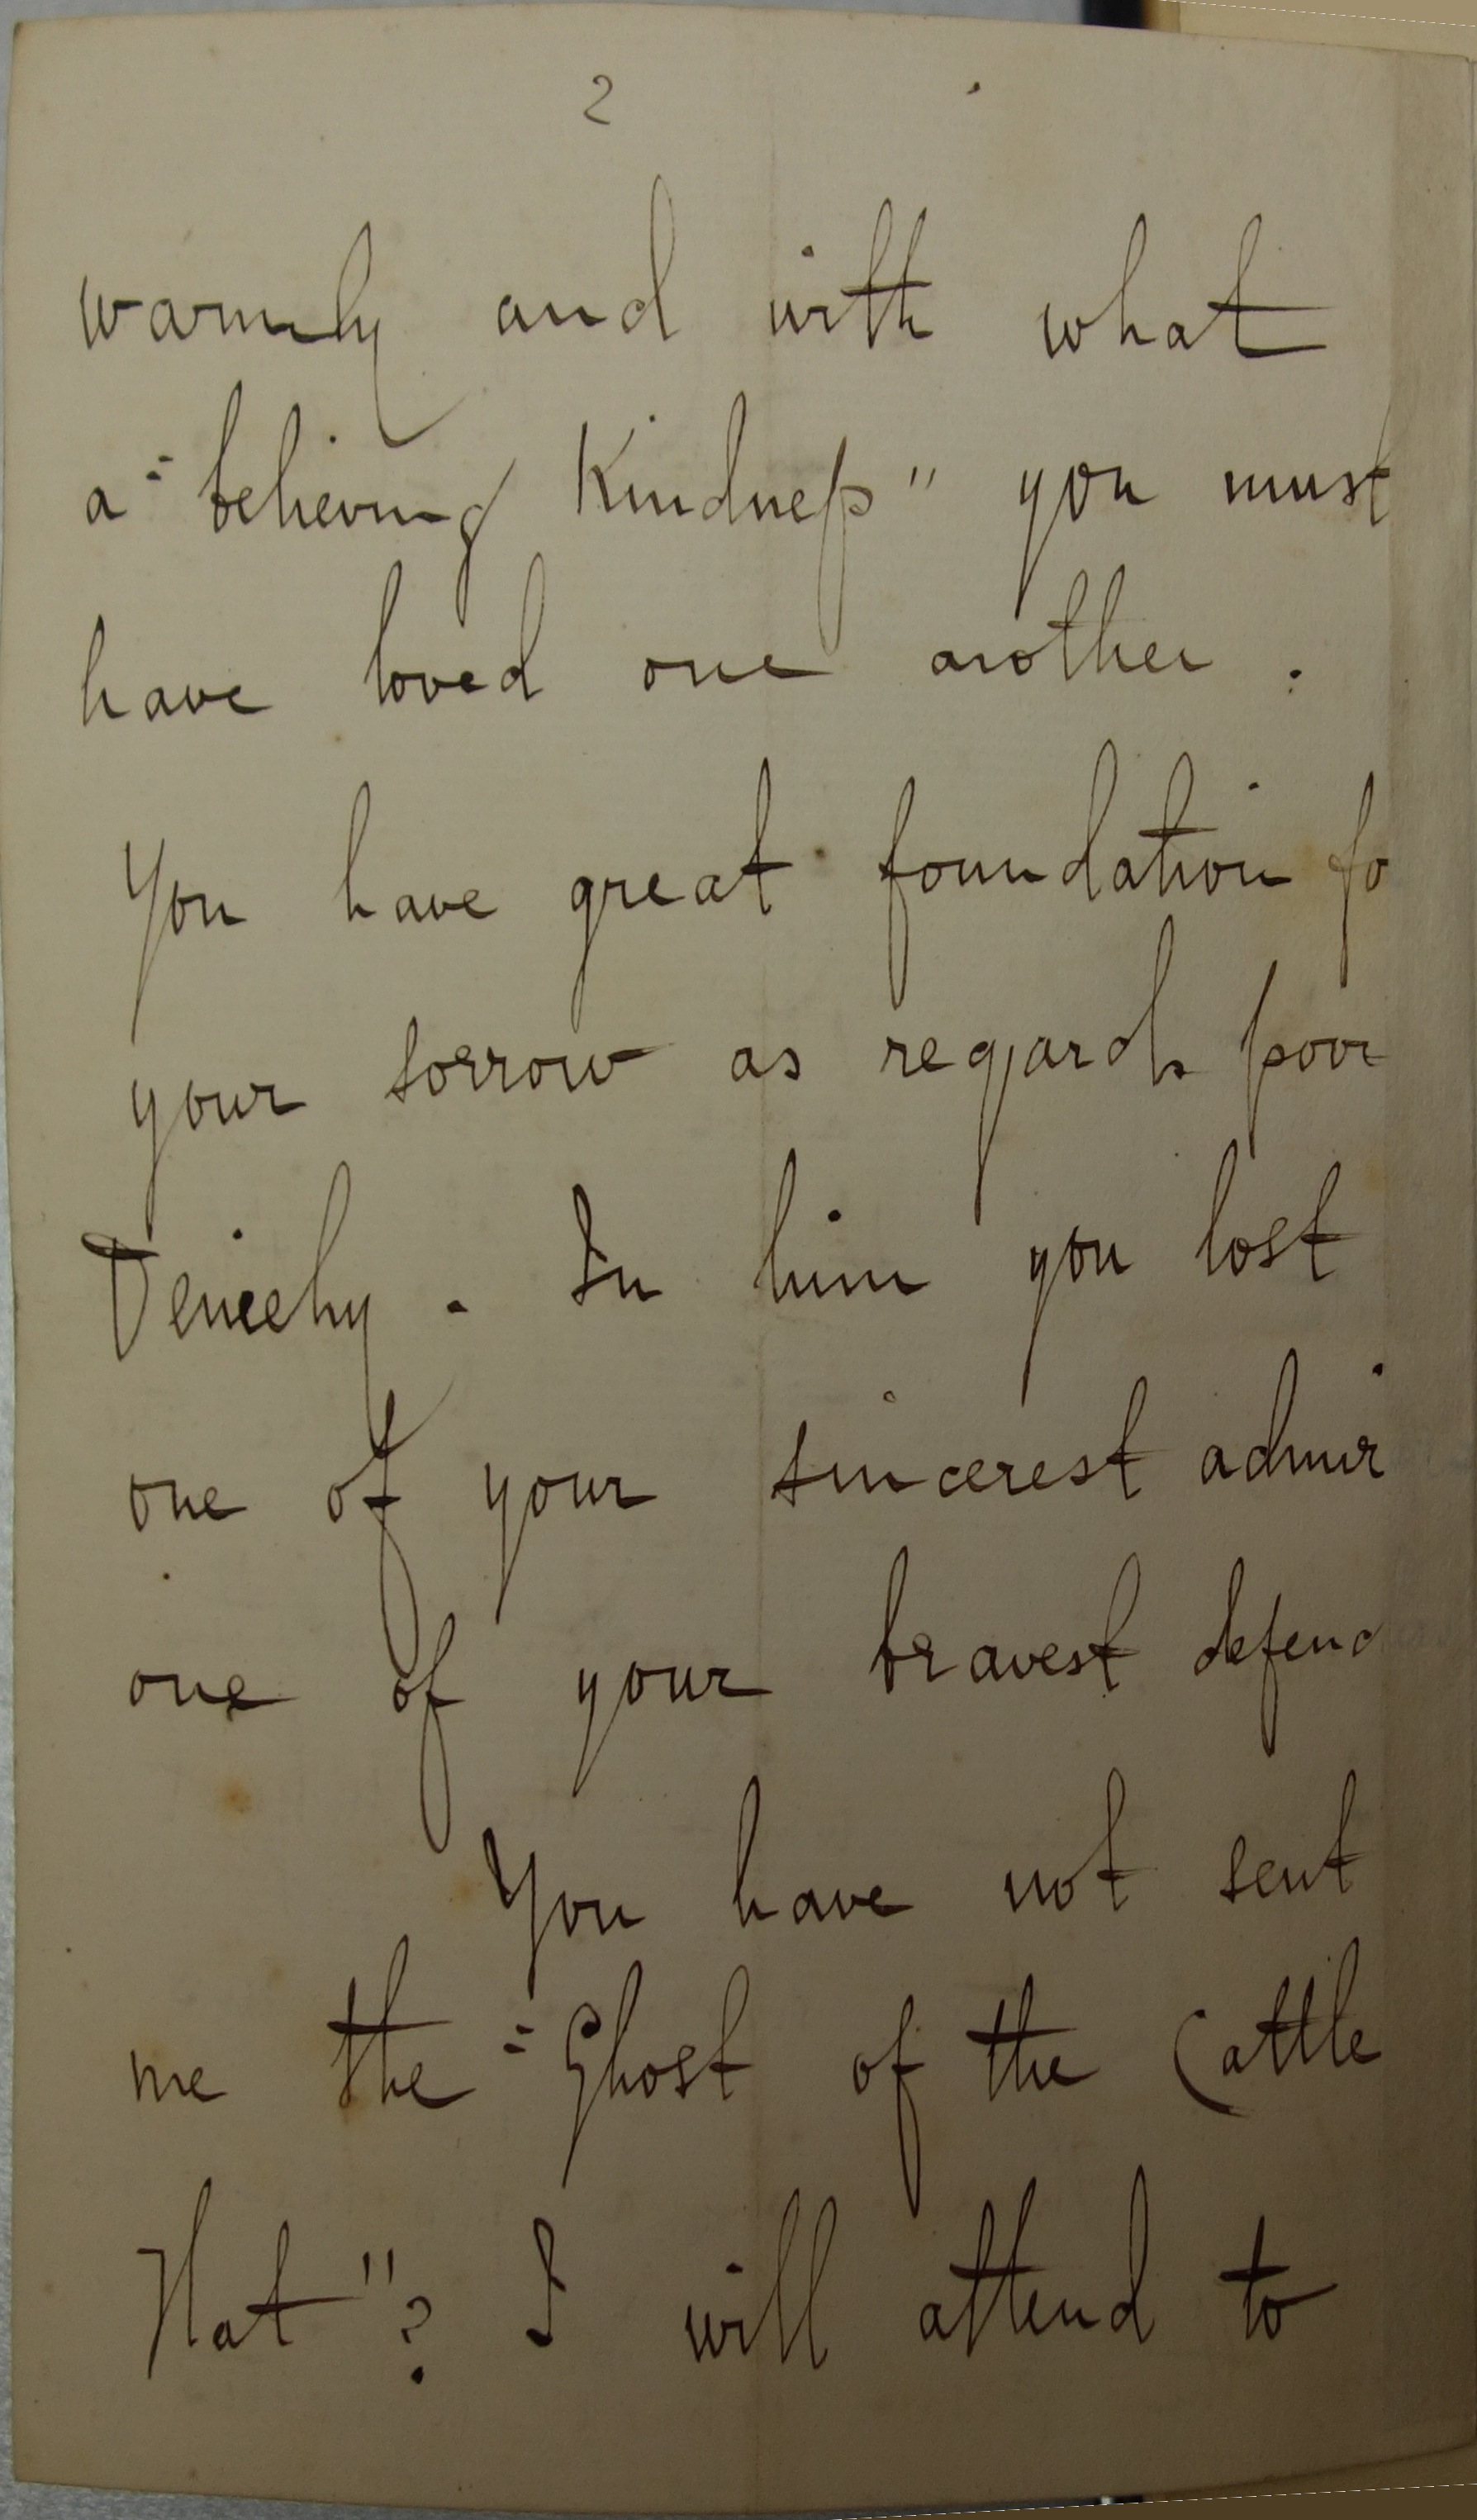 2
warmly and with what
a "believing Kindness" you must
have loved one another.
You have great foundation fo
your sorrow as regards poor
Deniehy. In him you lost
one of your sincerest admir
one of your bravest defend
You have not sent
me the "Ghost of the Cattle
Flat"? I will attend to